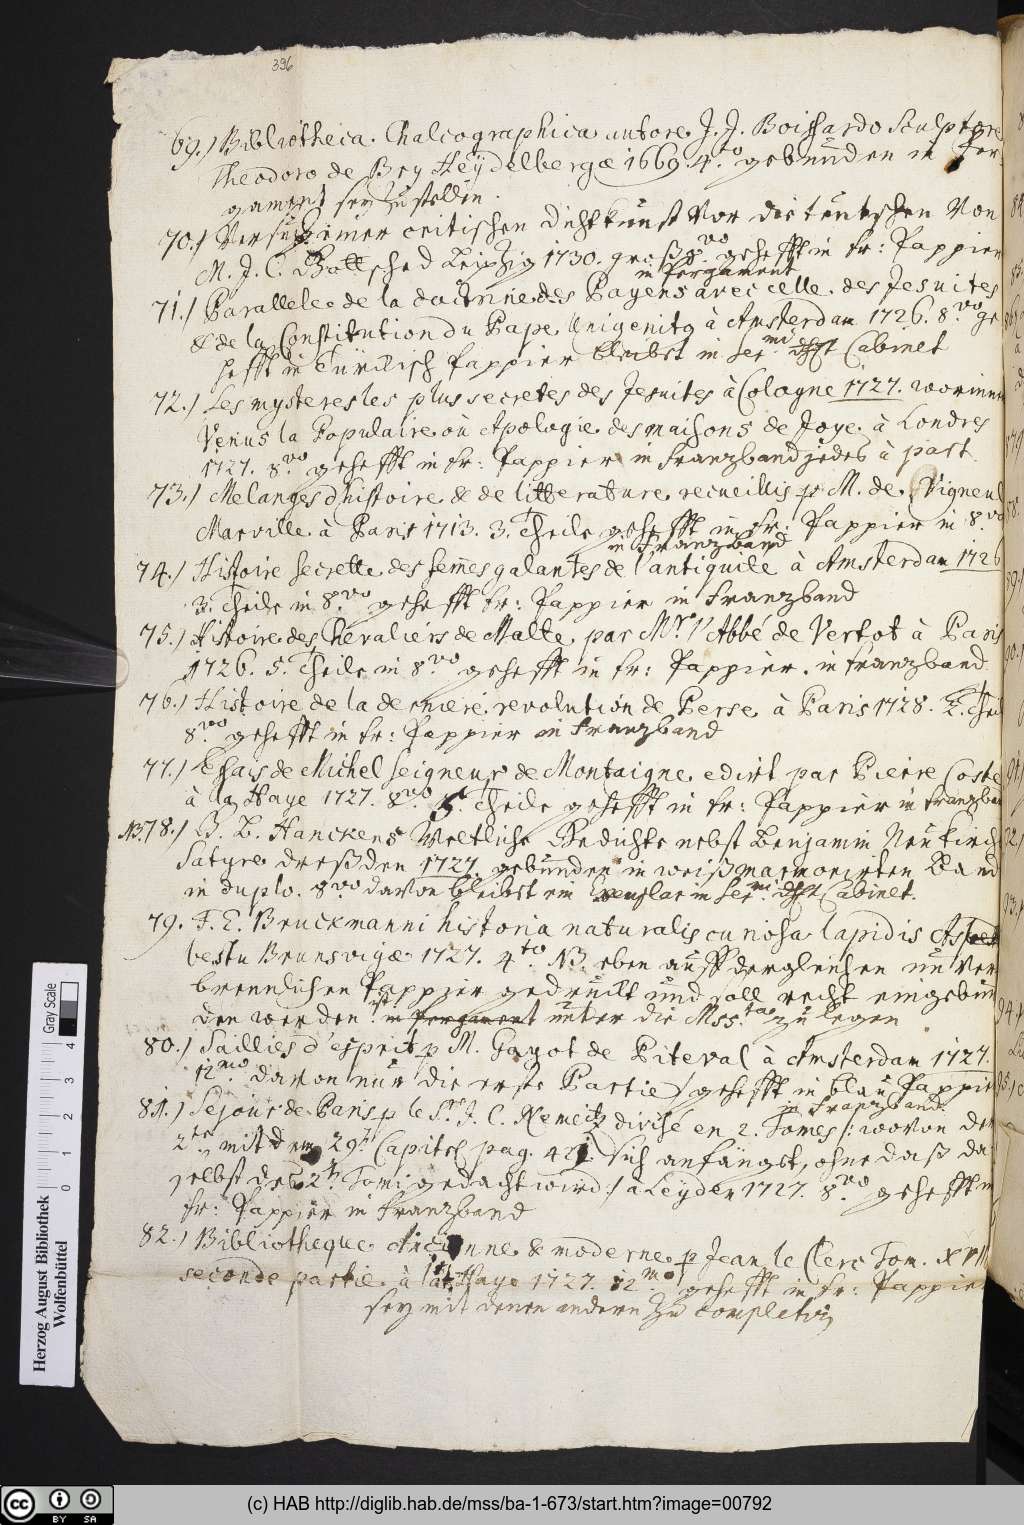 396
69.) Bibliotheca Chalcographica autore J. J. Boissardo Sculptore
Theodoro de Bry Heydelbergæ 1669. 4.to gebunden in Per
gament sey zu stellen.
70.) Versuch einer critischen Dichtkunst vor die teutschen Von
M. J. C. Gottsched Leipzig 1730. groß 8.vo gehefft in fr: Pappier
in Pergament
71.) Parallele de la doctrine des Payens avec celle des Jesuites
& de la Constitution du Pape Unigenitq à Amsterdam 1726. 8.vo ge
hefft in Türckisch Pappier bleibst in Ser.mi Cabinet
72.) Les mysteres les plus secretes des Jesuites à Cologne 1727. worinnen
Venus la Populaire où Apologie des maisons de Joye à Londres
1727. 8.vo gehefft in fr: Pappier in Franzband jedes à part.
73.) Melanges d'histoire & de litterature recueillis p M. de Vigneul
Marville à Paris 1713. 3. Theile gehefft in fr: Pappier in 8.vo
in Franzband
74.) Histoire secrette des femes galantes de l'antiquite à Amsterdam 1726
3. Theile in 8.vo gehefft fr: Pappier in Franzband
75.) Histoire des Chevaliers de Malte par Mr. l'Abbé de Vertot à Paris
1726. 5. Theile in 8.vo gehefft in fr: Pappier. in Franzband
76.) Histoire de la derniere revolution de Perse à Paris 1728. 2. Theil
8.vo gehefft in fr: Pappier in Franzband
77.) Essais de Michel Seigneur de Montaigne edirt par Pierre Coste
à la Haye 1727. 8.vo 5. Theile gehefft in fr: Pappier in Franzban
NB. 78.) G. B. Hanckens Weltliche Gedichte nebst Benjamin Neukirch
Satyre Dreßden 1727. gebunden in weiß marmorirten Band
in duplo. 8.vo davon bleibst ein Exemplar in Ser.mi Cabinet.
79. F. E. Bruckmanni historia naturalis curiosa lapidis Asbest
bestu Brunsvigæ 1727. 4.to NB. eben auff dergleichen unver
brennlichen Pappier gedruckt und soll recht eingebun
den werden. ist in Pergament unter die Mss.ta zu legen
80.) Saillies d'esprit p M. Gayot de Piteval à Amsterdam 1727.
12.mo davon nur die erste Partie gehefft in blau Pappier
in Franzband.
81.) Sejour de Paris p le Sr. J. C. Nemeitz divisé en 2. Tomes /: wovon der
2te mit dem 29t Capitel pag. 421 sich anfängst, ohne daß da
selbst des 2t Tomi gedacht wird :/ à Leyden 1727. 8.vo gehefft in
fr: Pappier in Franzband
82.) Bibliotheque Ancienne & moderne p Jean le Clerc Tom. XVII
seconde partie à la Haye 1727. 12mo gehefft in fr: Pappier
sey mit denen andern zu completirn
Herzog August Bibliothek
Wolfenbüttel
Gray Scale
0 1 2 3 4
cc BY SA
(c) HAB http://diglib.hab.de/mss/ba-1-673/start.htm?image=00792